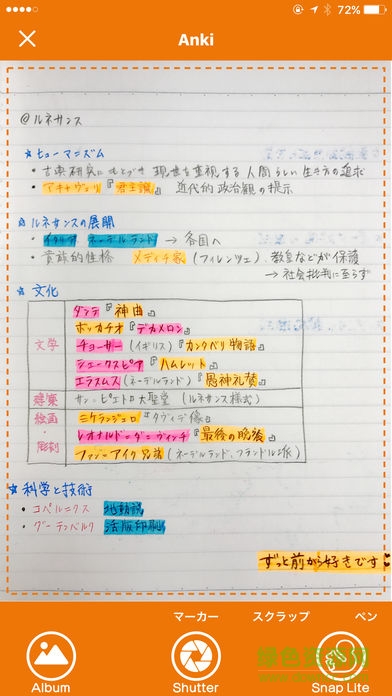 72%
Anki
@ルネサンス
☆ヒューマニズム
・古典研究にもとづき 現世を重視する人間らしい生き方の追求
・マキャヴェリ『君主論』 近代的政治観の提示
☆ルネサンスの展開
・イタリア ネーデルランド → 各国へ
・貴族的性格 メディチ家(フィレンツェ)、教皇などが保護
→ 社会批判に至らず
☆文化
ダンテ『神曲』
ボッカチオ『デカメロン』
文学 チョーサー(イギリス)『カンタベリ物語』
シェークスピア『ハムレット』
エラスムス(ネーデルランド)『愚神礼賛』
建築 サン=ピエトロ大聖堂(ルネサンス様式)
絵画 ミケランジェロ『ダヴィデ像』
・ レオナルド=ダ=ヴィンチ『最後の晩餐』
彫刻 ファン=アイク兄弟(ネーデルランド、フランドル派)
☆科学と技術
・コペルニクス 地動説
・グーテンベルク 活版印刷
ずっと前から好きです
マーカー スクラップ ペン
Album Shutter Snap Lite